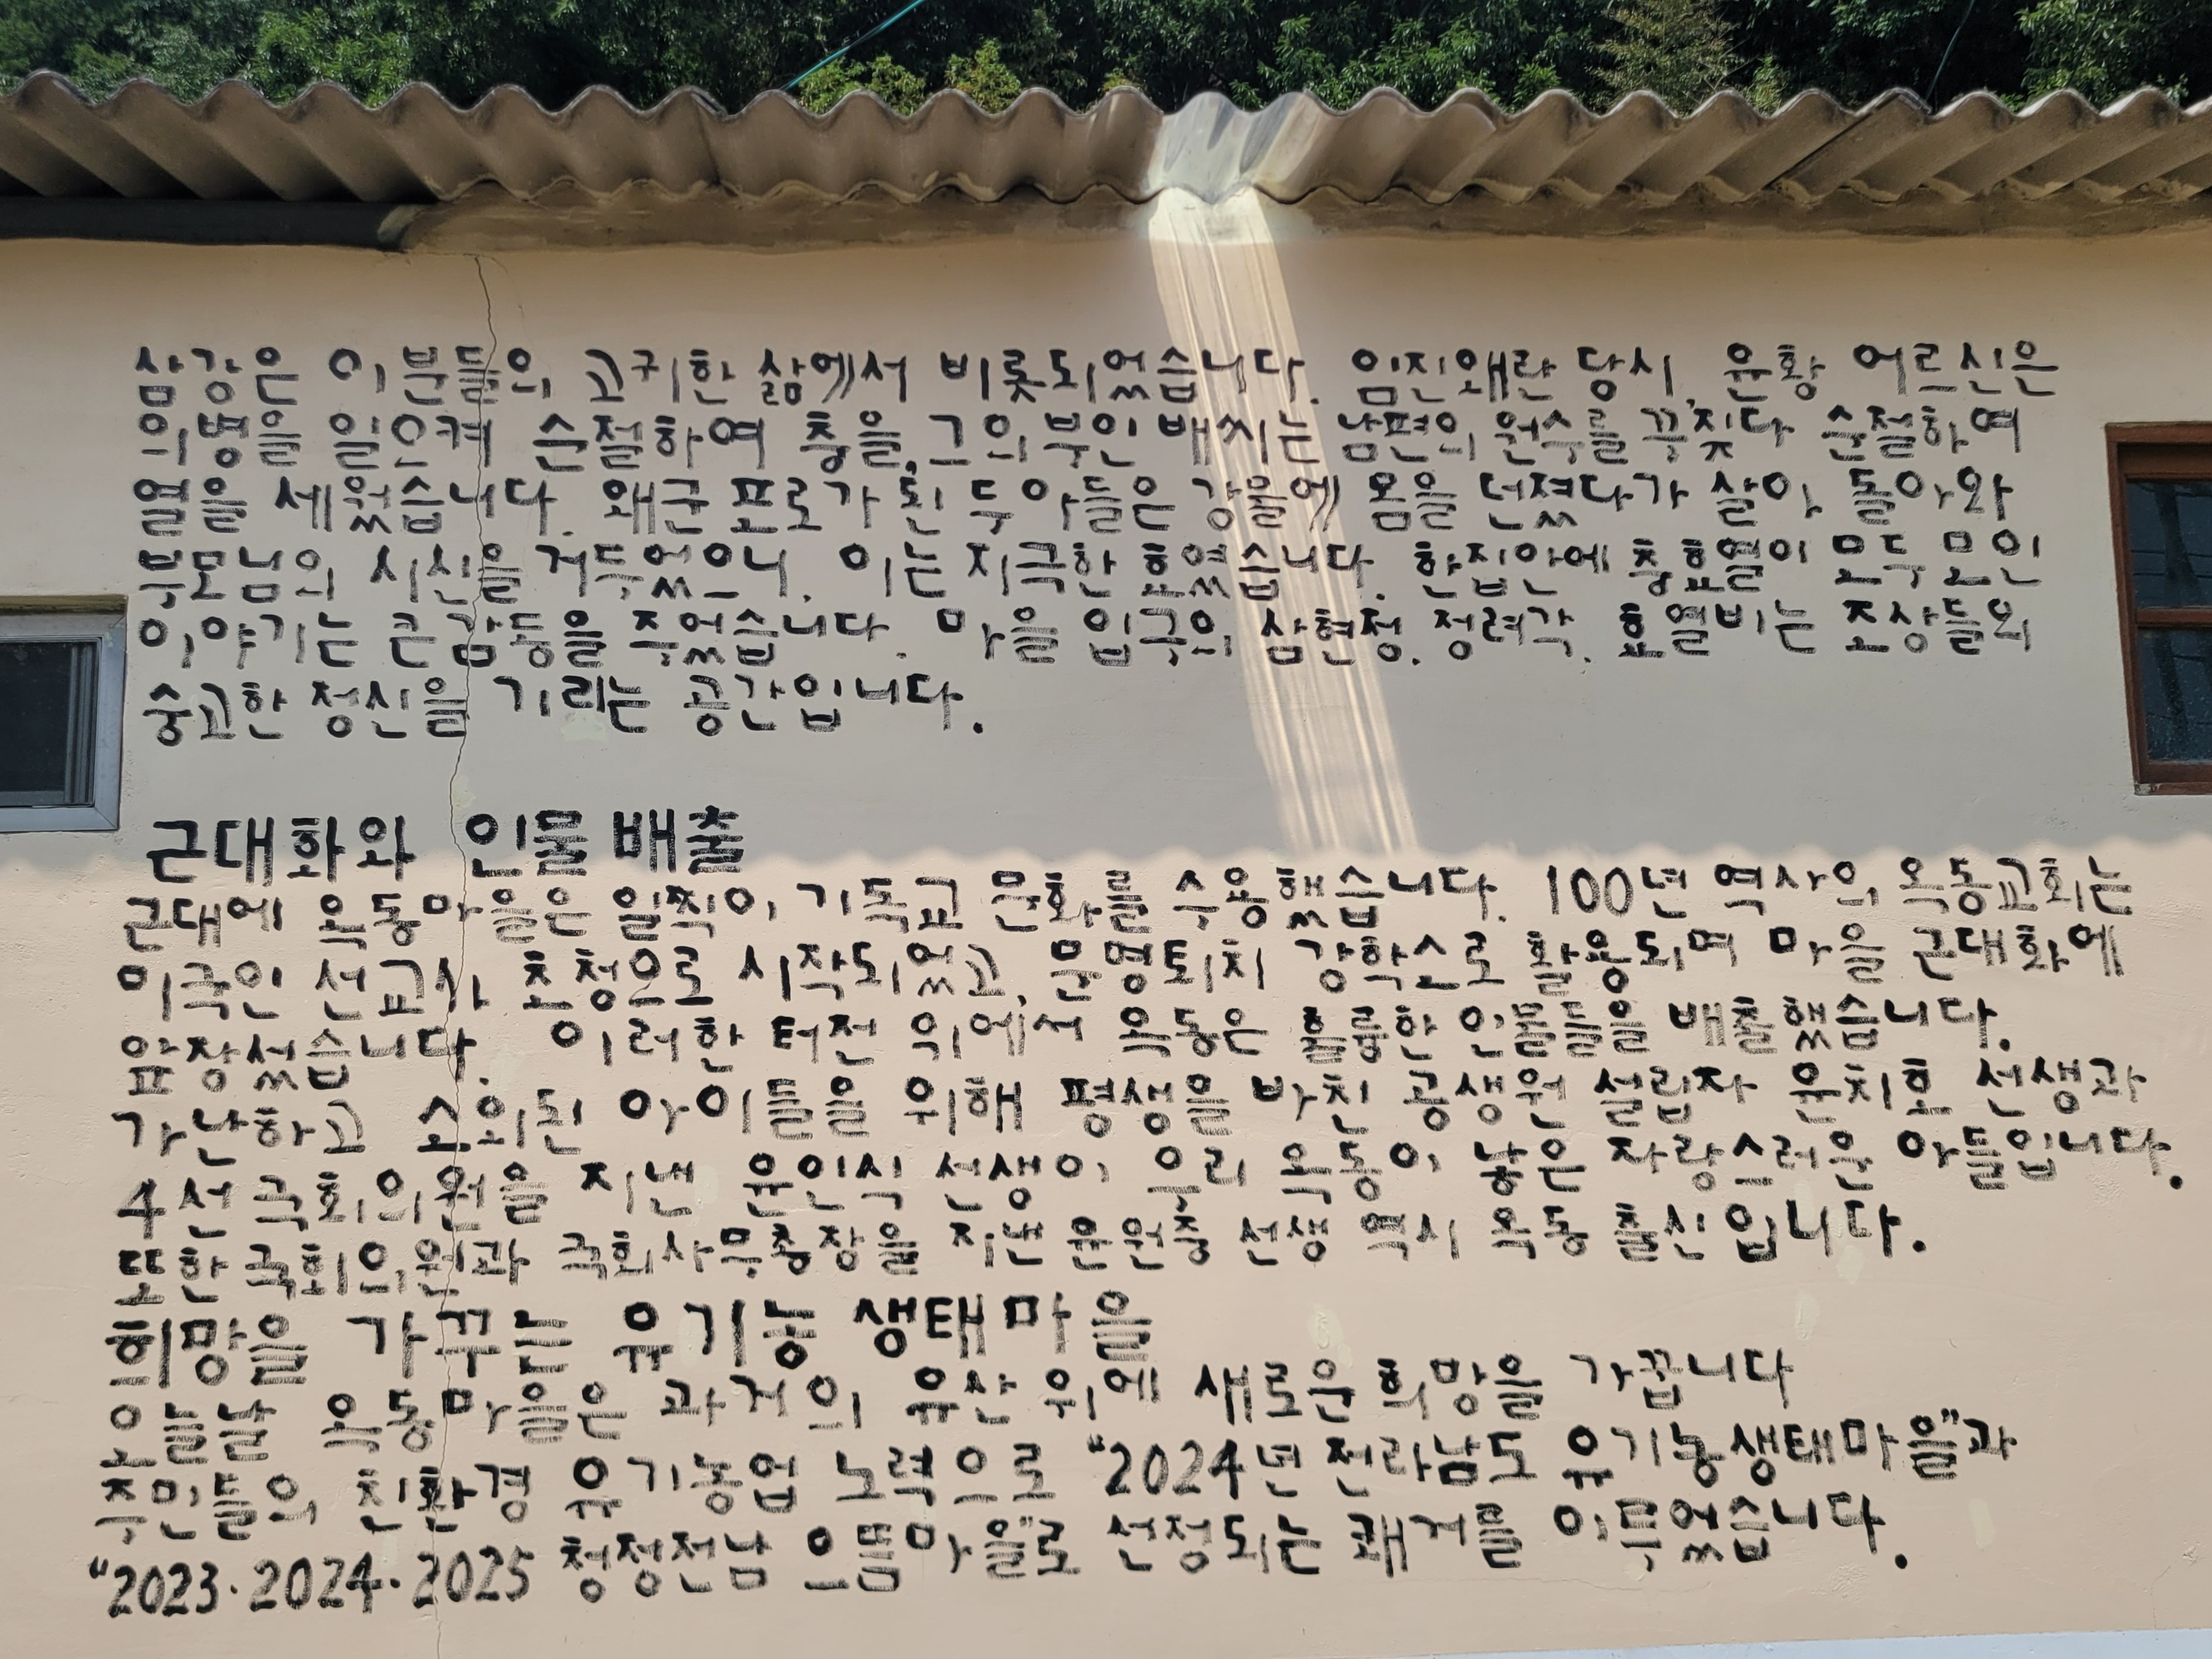 삼강은 이분들의 고귀한 삶에서 비롯되었습니다. 임진왜란 당시, 윤황 어르신은
의병을 일으켜 순절하여 충을, 그의 부인 배씨는 남편의 원수를 꾸짖다 순절하여
열을 세웠습니다. 왜군 포로가 된 두 아들은 강물에 몸을 던졌다가 살아 돌아와
부모님의 시신을 거두었으니, 이는 지극한 효였습니다. 한집안에 충효열이 모두 모인
이야기는 큰 감동을 주었습니다. 마을 입구의 삼현정, 정려각, 효열비는 조상들의
숭고한 정신을 기리는 공간입니다.
근대화와 인물 배출
근대에 옥동마을은 일찍이 기독교 문화를 수용했습니다. 100년 역사의 옥동교회는
미국인 선교사 초청으로 시작되었고, 문명퇴치 강학소로 활용되며 마을 근대화에
앞장섰습니다. 이러한 터전 위에서 옥동은 훌륭한 인물들을 배출했습니다.
가난하고 소외된 아이들을 위해 평생을 바친 공생원 설립자 윤치호 선생과
4선 국회의원을 지낸 윤인식 선생이 우리 옥동이 낳은 자랑스러운 아들입니다.
또한 국회의원과 국회사무총장을 지낸 윤원중 선생 역시 옥동 출신입니다.
희망을 가꾸는 유기농 생태마을
오늘날 옥동마을은 과거의 유산 위에 새로운 희망을 가꿉니다
주민들의 친환경 유기농업 노력으로 "2024년 전라남도 유기농생태마을"과
"2023·2024·2025 청정전남 으뜸마을"로 선정되는 쾌거를 이루었습니다.